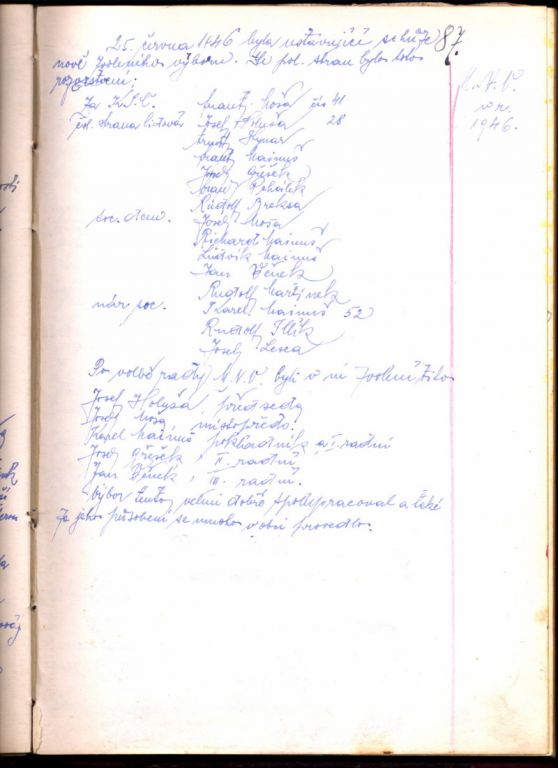 87.
25. června 1946 byla ustavující schůze
nově zvoleného výboru. Ze pol. stran bylo toto
rozvrstvení:
M.N.V.
v r.
1946.
Za K.S.Č. Frant. Hoša čís 41
pol. strana lidová Josef Holuša 28
Arnošt Hynar
Frant. Haimuš
Josef
Frant.
Rudolf Breksa
soc. dem. Josef Hoša
Richard Haimuš
Ludvik Haimuš
Jan
Rudolf Martinek
nár. soc. Karel Haimuš 52
Rudolf Illík
Josef Lesca
Po volbě rady M.N.V. byli v ní zvoleni
Josef Holuša, předseda
Josef Hoša místopředs.
Karel Haimuš pokladník a I. radní
Josef , II. radní,
Jan , III. radní.
Výbor tento velmi dobře spolupracoval a také
za jeho působení se mnoho v obci provedlo.